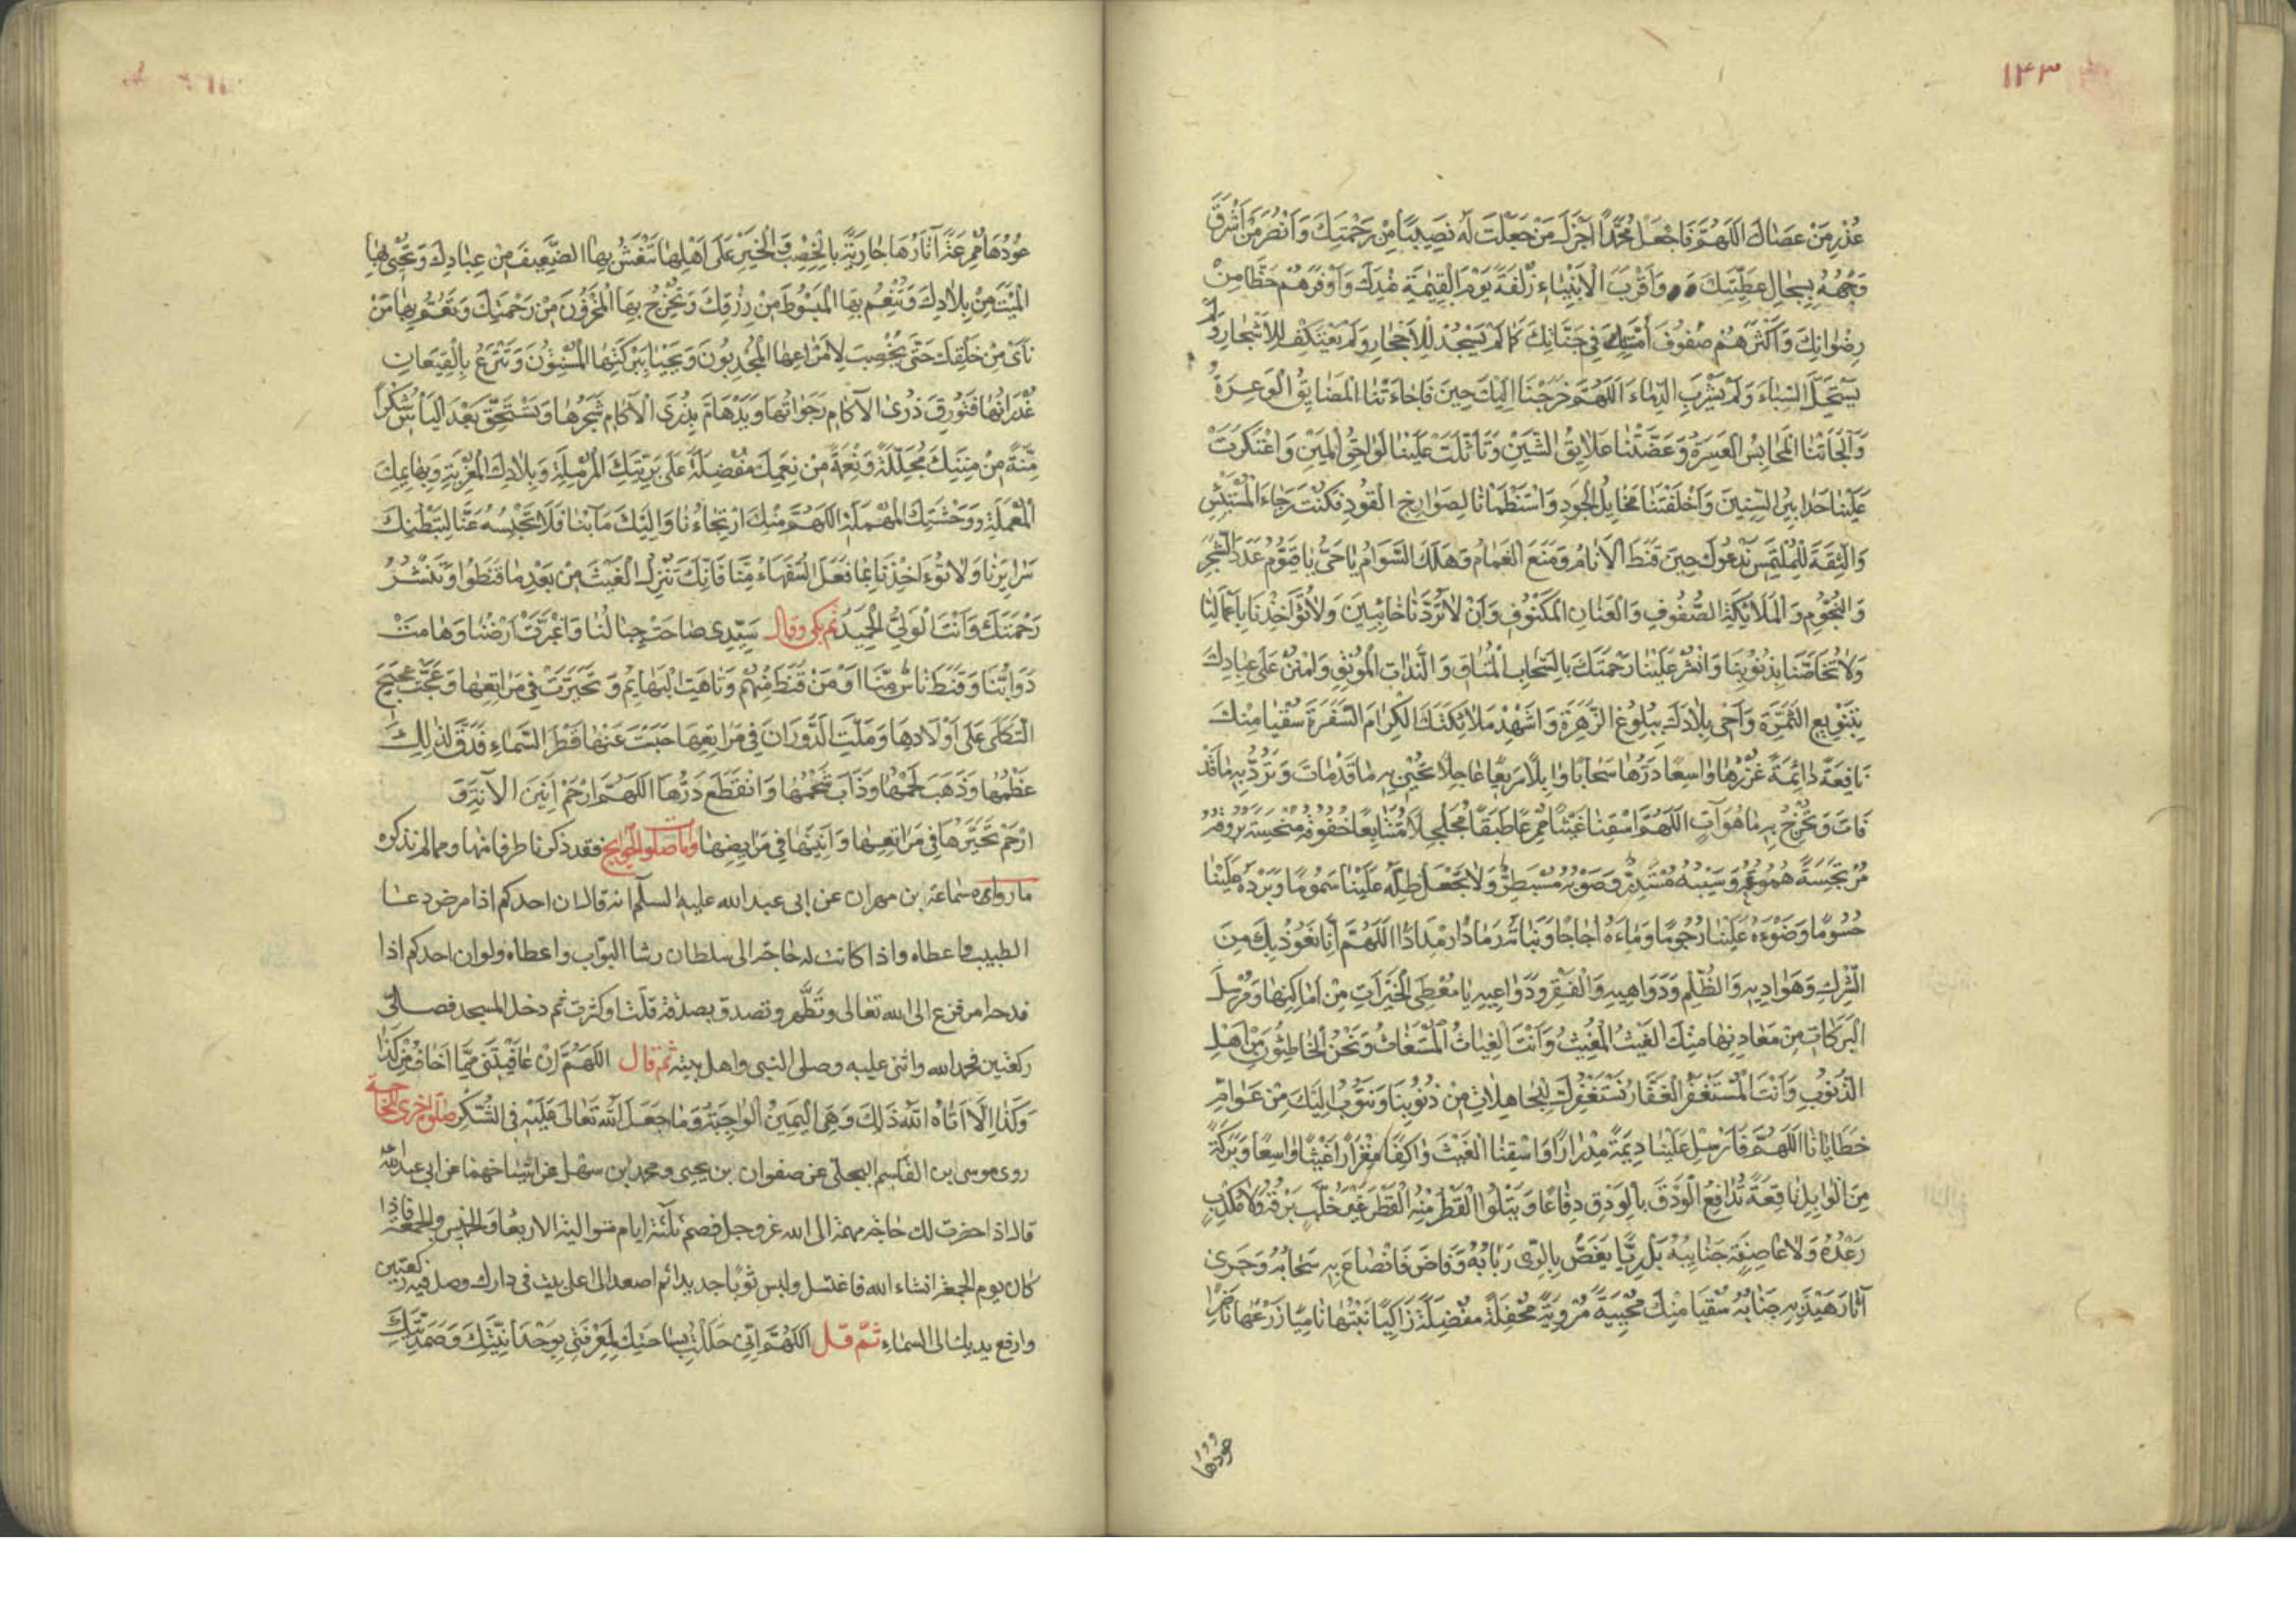 ١٤٣
عُذْرِ مَنْ عَصٰاكَ اَللّٰهُمَّ فَاجْعَلْ مُحَمَّدًا اَجْزَلَ مَنْ جَعَلْتَ لَهُ نَصِيبًا مِنْ رَحْمَتِكَ وَاَنْضَرَ مَنْ اَشْرَقَ
وَجْهُهُ بِسِجٰالِ عَطِيَّتِكَ وَاَقْرَبَ الْاَنْبِيٰاءِ زُلْفَةً يَوْمَ الْقِيٰمَةِ عِنْدَكَ وَاَوْفَرَهُمْ حَظًّا مِنْ
رِضْوٰانِكَ وَاَكْثَرَهُمْ صُفُوفَ اُمَّةٍ فِي جَنّٰاتِكَ كَمٰا لَمْ يَسْجُدْ لِلْاَحْجٰارِ وَلَمْ يَعْتَكِفْ لِلْاَشْجٰارِ وَلَمْ
يَسْتَحِلَّ السِّبٰاءَ وَلَمْ يَشْرَبِ الدِّمٰاءَ اَللّٰهُمَّ خَرَجْنٰا اِلَيْكَ حِينَ فَاجٰاءَتْنَا الْمَضٰايِقُ الْوَعِرَةُ
وَاَلْجَاَتْنَا الْمَحٰابِسُ الْعَسِرَةُ وَعَضَّتْنٰا عَلٰايِقُ الشَّيْنِ وَتَاَثَّلَتْ عَلَيْنٰا لَوٰاحِقُ الْمَيْنِ وَاعْتَكَرَتْ
عَلَيْنٰا حَدٰابِيرُ السِّنِينَ وَاَخْلَفَتْنٰا مَخٰايِلُ الْجَوْدِ وَاسْتَظْمَاْنٰا لِصَوٰارِخِ الْقَوْدِ فَكُنْتَ رَجٰاءَ الْمُبْتَئِسِ
وَالثِّقَةَ لِلْمُلْتَمِسِ نَدْعُوكَ حِينَ قَنَطَ الْاَنٰامُ وَمُنِعَ الْغَمٰامُ وَهَلَكَ السَّوٰامُ يٰا حَيُّ يٰا قَيُّومُ عَدَدَ الشَّجَرِ
وَالنُّجُومِ وَالْمَلٰائِكَةِ الصُّفُوفِ وَالْعَنٰانِ الْمَكْفُوفِ وَاَنْ لٰا تَرُدَّنٰا خٰائِبِينَ وَلٰا تُؤٰاخِذَنٰا بِاَعْمٰالِنٰا
وَلٰا تُحٰاصَّنٰا بِذُنُوبِنٰا وَانْشُرْ عَلَيْنٰا رَحْمَتَكَ بِالسَّحٰابِ الْمُتْاَقِ وَالنَّبٰاتِ الْمُونِقِ وَامْنُنْ عَلٰى عِبٰادِكَ
بِتَنْوِيعِ الثَّمَرَةِ وَاَحْيِ بِلٰادَكَ بِبُلُوغِ الزَّهَرَةِ وَاَشْهِدْ مَلٰائِكَتَكَ الْكِرٰامَ السَّفَرَةَ سُقْيٰا مِنْكَ
نٰافِعَةً دٰائِمَةً غُزْرُهٰا وٰاسِعًا دَرُّهٰا سَحٰابًا وٰابِلًا سَرِيعًا عٰاجِلًا تُحْيِي بِهِ مٰا قَدْ مٰاتَ وَتَرُدُّ بِهِ مٰا قَدْ
فٰاتَ وَتُخْرِجُ بِهِ مٰا هُوَ آتٍ اَللّٰهُمَّ اسْقِنٰا غَيْثًا مُمْرِعًا طَبَقًا مُجَلْجِلًا مُتَتٰابِعًا خُفُوقُهُ مُنْبَجِسَةً بُرُوقُهُ
مُرْتَجِسَةً هُمُوعُهُ وَسَيْبُهُ مُسْتَدِرٌّ وَصَوْبُهُ مُسْبَطِرٌّ وَلٰا تَجْعَلْ ظِلَّهُ عَلَيْنٰا سَمُومًا وَبَرْدَهُ عَلَيْنٰا
حُسُومًا وَضَوْءَهُ عَلَيْنٰا رُجُومًا وَمٰاءَهُ اُجٰاجًا وَنَبٰاتَهُ رَمٰادًا رِمْدَادًا اَللّٰهُمَّ اِنّٰا نَعُوذُ بِكَ مِنَ
الشِّرْكِ وَهَوٰادِيهِ وَالظُّلْمِ وَدَوٰاهِيهِ وَالْفَقْرِ وَدَوٰاعِيهِ يٰا مُعْطِيَ الْخَيْرٰاتِ مِنْ اَمٰاكِنِهٰا وَمُرْسِلَ
الْبَرَكٰاتِ مِنْ مَعٰادِنِهٰا مِنْكَ الْغَيْثُ الْمُغِيثُ وَاَنْتَ الْغِيٰاثُ الْمُسْتَغٰاثُ وَنَحْنُ الْخٰاطِئُونَ مِنْ اَهْلِ
الذُّنُوبِ وَاَنْتَ الْمُسْتَغْفَرُ الْغَفّٰارُ نَسْتَغْفِرُكَ لِلْجٰاهِلٰاتِ مِنْ ذُنُوبِنٰا وَنَتُوبُ اِلَيْكَ مِنْ عَوٰامِّ
خَطٰايٰانٰا اَللّٰهُمَّ فَاَرْسِلْ عَلَيْنٰا دِيمَةً مِدْرٰارًا وَاسْقِنَا الْغَيْثَ وٰاكِفًا مِغْزٰارًا غَيْثًا وٰاسِعًا وَبَرَكَةً
مِنَ الْوٰابِلِ نٰافِعَةً تُدٰافِعُ الْوَدْقَ بِالْوَدْقِ دِفٰاعًا وَيَتْلُوا الْقَطْرُ مِنْهُ الْقَطْرَ غَيْرَ خُلَّبٍ بَرْقُهُ وَلٰا مُكَذَّبٍ
رَعْدُهُ وَلٰا عٰاصِفَةٍ جَنٰايِبُهُ بَلْ رِيًّا يَغَصُّ بِالرِّيِّ رَبٰابُهُ وَفٰاضَ فَانْصٰاعَ بِهِ سَحٰابُهُ وَجَرٰى
آثٰارَ هَيْدَبِهِ جَنٰابُهُ سُقْيٰا مِنْكَ مُحْيِيَةً مُرْوِيَةً مُحْفِلَةً مُفْضِلَةً زٰاكِيًا نَبْتُهٰا نٰامِيًا زَرْعُهٰا نٰاضِرًا
عودها
عُودُهٰا مُمْرِعَةً آثٰارُهٰا جٰارِيَةً بِالْخِصْبِ وَالْخَيْرِ عَلٰى اَهْلِهٰا تَنْعَشُ بِهَا الضَّعِيفَ مِنْ عِبٰادِكَ وَتُحْيِي بِهَا
الْمَيْتَ مِنْ بِلٰادِكَ وَتُنْعِمُ بِهَا الْمَبْسُوطَ مِنْ رِزْقِكَ وَتُخْرِجُ بِهَا الْمَخْزُونَ مِنْ رَحْمَتِكَ وَتَعُمُّ بِهٰا مَنْ
نَاٰى مِنْ خَلْقِكَ حَتّٰى يُخْصِبَ لِاِمْرٰاعِهَا الْمُجْدِبُونَ وَيَحْيٰا بِبَرَكَتِهَا الْمُسْنِتُونَ وَتُتْرَعَ بِالْقِيعٰانِ
غُدْرٰانُهٰا وَتُورِقَ ذُرَى الْآكٰامِ رَجَوٰاتُهٰا وَيَدْهٰامَّ بِذُرَى الْآكٰامِ شَجَرُهٰا وَتَسْتَحِقَّ بَعْدَ الْيَأْسِ شُكْرًا
مِنَّةً مِنْ مِنَنِكَ مُجَلِّلَةً وَنِعْمَةً مِنْ نِعَمِكَ مُفْضِلَةً عَلٰى بَرِيَّتِكَ الْمُرْمِلَةِ وَبِلٰادِكَ الْمُعْزَبَةِ وَبَهٰايِمِكَ
الْمُعْمَلَةِ وَوَحْشِكَ الْمُهْمَلَةِ اَللّٰهُمَّ مِنْكَ ارْتِجٰاءُنٰا وَاِلَيْكَ مَآبُنٰا فَلٰا تَحْبِسْهُ عَنّٰا لِتَبَطُّنِكَ
سَرٰايِرَنٰا وَلٰا تُؤٰاخِذْنٰا بِمٰا فَعَلَ السُّفَهٰاءُ مِنّٰا فَاِنَّكَ تُنْزِلُ الْغَيْثَ مِنْ بَعْدِ مٰا قَنَطُوا وَتَنْشُرُ
رَحْمَتَكَ وَاَنْتَ الْوَلِيُّ الْحَمِيدُ ثم بكى وقال سَيِّدِي صٰاحَتْ جِبٰالُنٰا وَاغْبَرَّتْ اَرْضُنٰا وَهٰامَتْ
دَوٰابُّنٰا وَقَنَطَ نٰاسٌ مِنّٰا اَوْ مَنْ قَنَطَ مِنْهُمْ وَتٰاهَتِ الْبَهٰايِمُ وَتَحَيَّرَتْ فِي مَرٰاتِعِهٰا وَعَجَّتْ عَجِيجَ
الثَّكْلٰى عَلٰى اَوْلٰادِهٰا وَمَلَّتِ الدَّوَرٰانَ فِي مَرٰابِعِهٰا حَبَسْتَ عَنْهٰا قَطْرَ السَّمٰاءِ فَدَقَّ لِذٰلِكَ
عَظْمُهٰا وَذَهَبَ لَحْمُهٰا وَذَابَ شَحْمُهٰا وَانْقَطَعَ دَرُّهَا اَللّٰهُمَّ ارْحَمْ اَنِينَ الْآنَّةِ وَ
ارْحَمْ تَحَيُّرَهٰا فِي مَرٰاتِعِهٰا وَاَنِينَهٰا فِي مَرٰابِضِهٰا واما صلوة الحوايج فقد ذكرنا طرفا منها ومما لم نذكره
ما رواه سماعة بن مهران عن ابى عبد الله عليه السلم انه قال ان احدكم اذا مرض دعا
الطبيب واعطاه واذا كانت له حاجة الى سلطان رشا البواب واعطاه ولو ان احدكم اذا
فدحه امر فزع الى الله تعالى وتطهر وتصدق بصدقة قلت او كثرت ثم دخل المسجد فصلى
ركعتين فحمد الله واثنى عليه وصلى النبى واهل بيته ثم قال اَللّٰهُمَّ اِنْ عٰافَيْتَنِي مِمّٰا اَخٰافُ مِنْ كَذٰا
وَكَذٰا اِلّٰا آتٰاهُ اللّٰهُ ذٰلِكَ وَهِيَ الْيَمِينُ الْوٰاجِبَةُ وَمٰا جَعَلَ اللّٰهُ تَعٰالٰى عَلَيْهِ فِي الشُّكْرِ صلوة اخرى للحاجة
روى موسى بن القاسم البجلى عن صفوان بن يحيى ومحمد بن سهل عن اشياخهما عن ابى عبد الله
قال اذا حضرت لك حاجة مهمة الى الله عز وجل فصم ثلثة ايام متوالية الاربعا والخميس والجمعة فاذا
كان يوم الجمعة انشاء الله فاغتسل والبس ثوبا جديدا ثم اصعد الى اعلى بيت فى دارك وصل فيه ركعتين
وارفع يديك الى السماء ثم قل اَللّٰهُمَّ اِنِّي حَلَلْتُ بِسٰاحَتِكَ لِمَعْرِفَتِي بِوَحْدٰانِيَّتِكَ وَصَمَدِيَّتِكَ